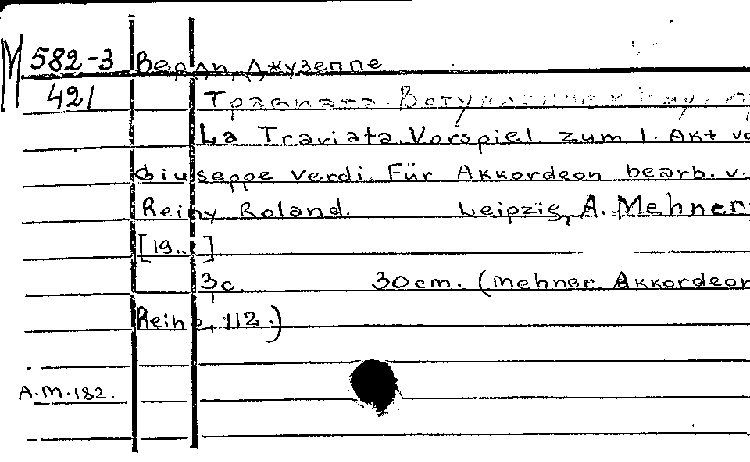 М 582-3 Верди, Джузеппе
421 Травиата. Вступление к
La Traviata. Vorspiel zum 1. Akt vo
Giuseppe Verdi. Für Akkordeon bearb. v.
Reiny Roland. Leipzig, A. Mehner
[19..]
3с. 30cm. (Mehner Akkordeon
Reihe, 112.)
A.M.182.